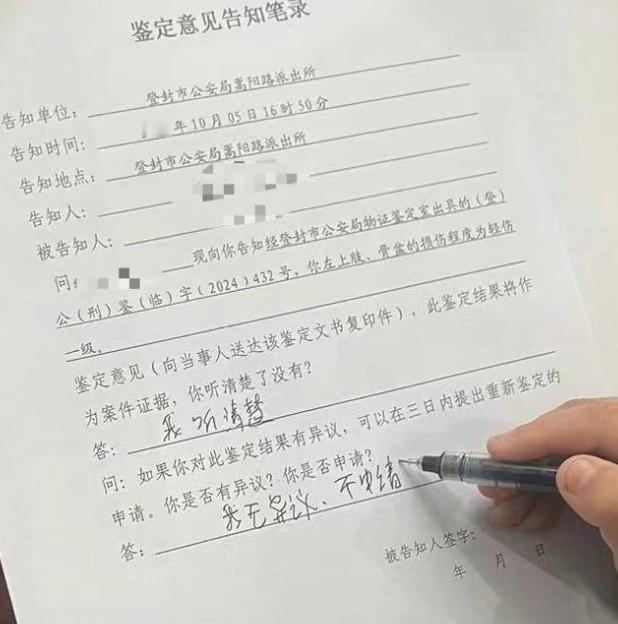 鉴定意见告知笔录
告知单位：登封市公安局嵩阳路派出所
告知时间：年10月05日16时50分
告知地点：登封市公安局嵩阳路派出所
告知人：
被告知人：
问：现向你告知经登封市公安局物证鉴定室出具的（登）
公（刑）鉴（临）字（2024）432号，你左上肢、骨盆的损伤程度为轻伤
一级。
鉴定意见（向当事人送达该鉴定文书复印件），此鉴定结果将作
为案件证据，你听清楚了没有？
答：我听清楚
问：如果你对此鉴定结果有异议，可以在三日内提出重新鉴定的
申请。你是否有异议？你是否申请？
答：我无异议、不申请
被告知人签字：
年 月 日